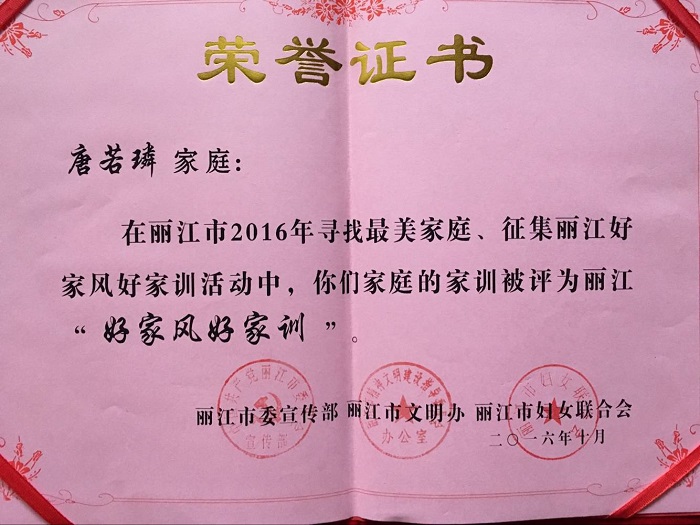 荣誉证书
唐若璘 家庭：
在丽江市2016年寻找最美家庭、征集丽江好
家风好家训活动中，你们家庭的家训被评为丽江
“ 好家风好家训 ”。
丽江市委宣传部 丽江市文明办 丽江市妇女联合会
二〇一六年十月
宣传部
办公室